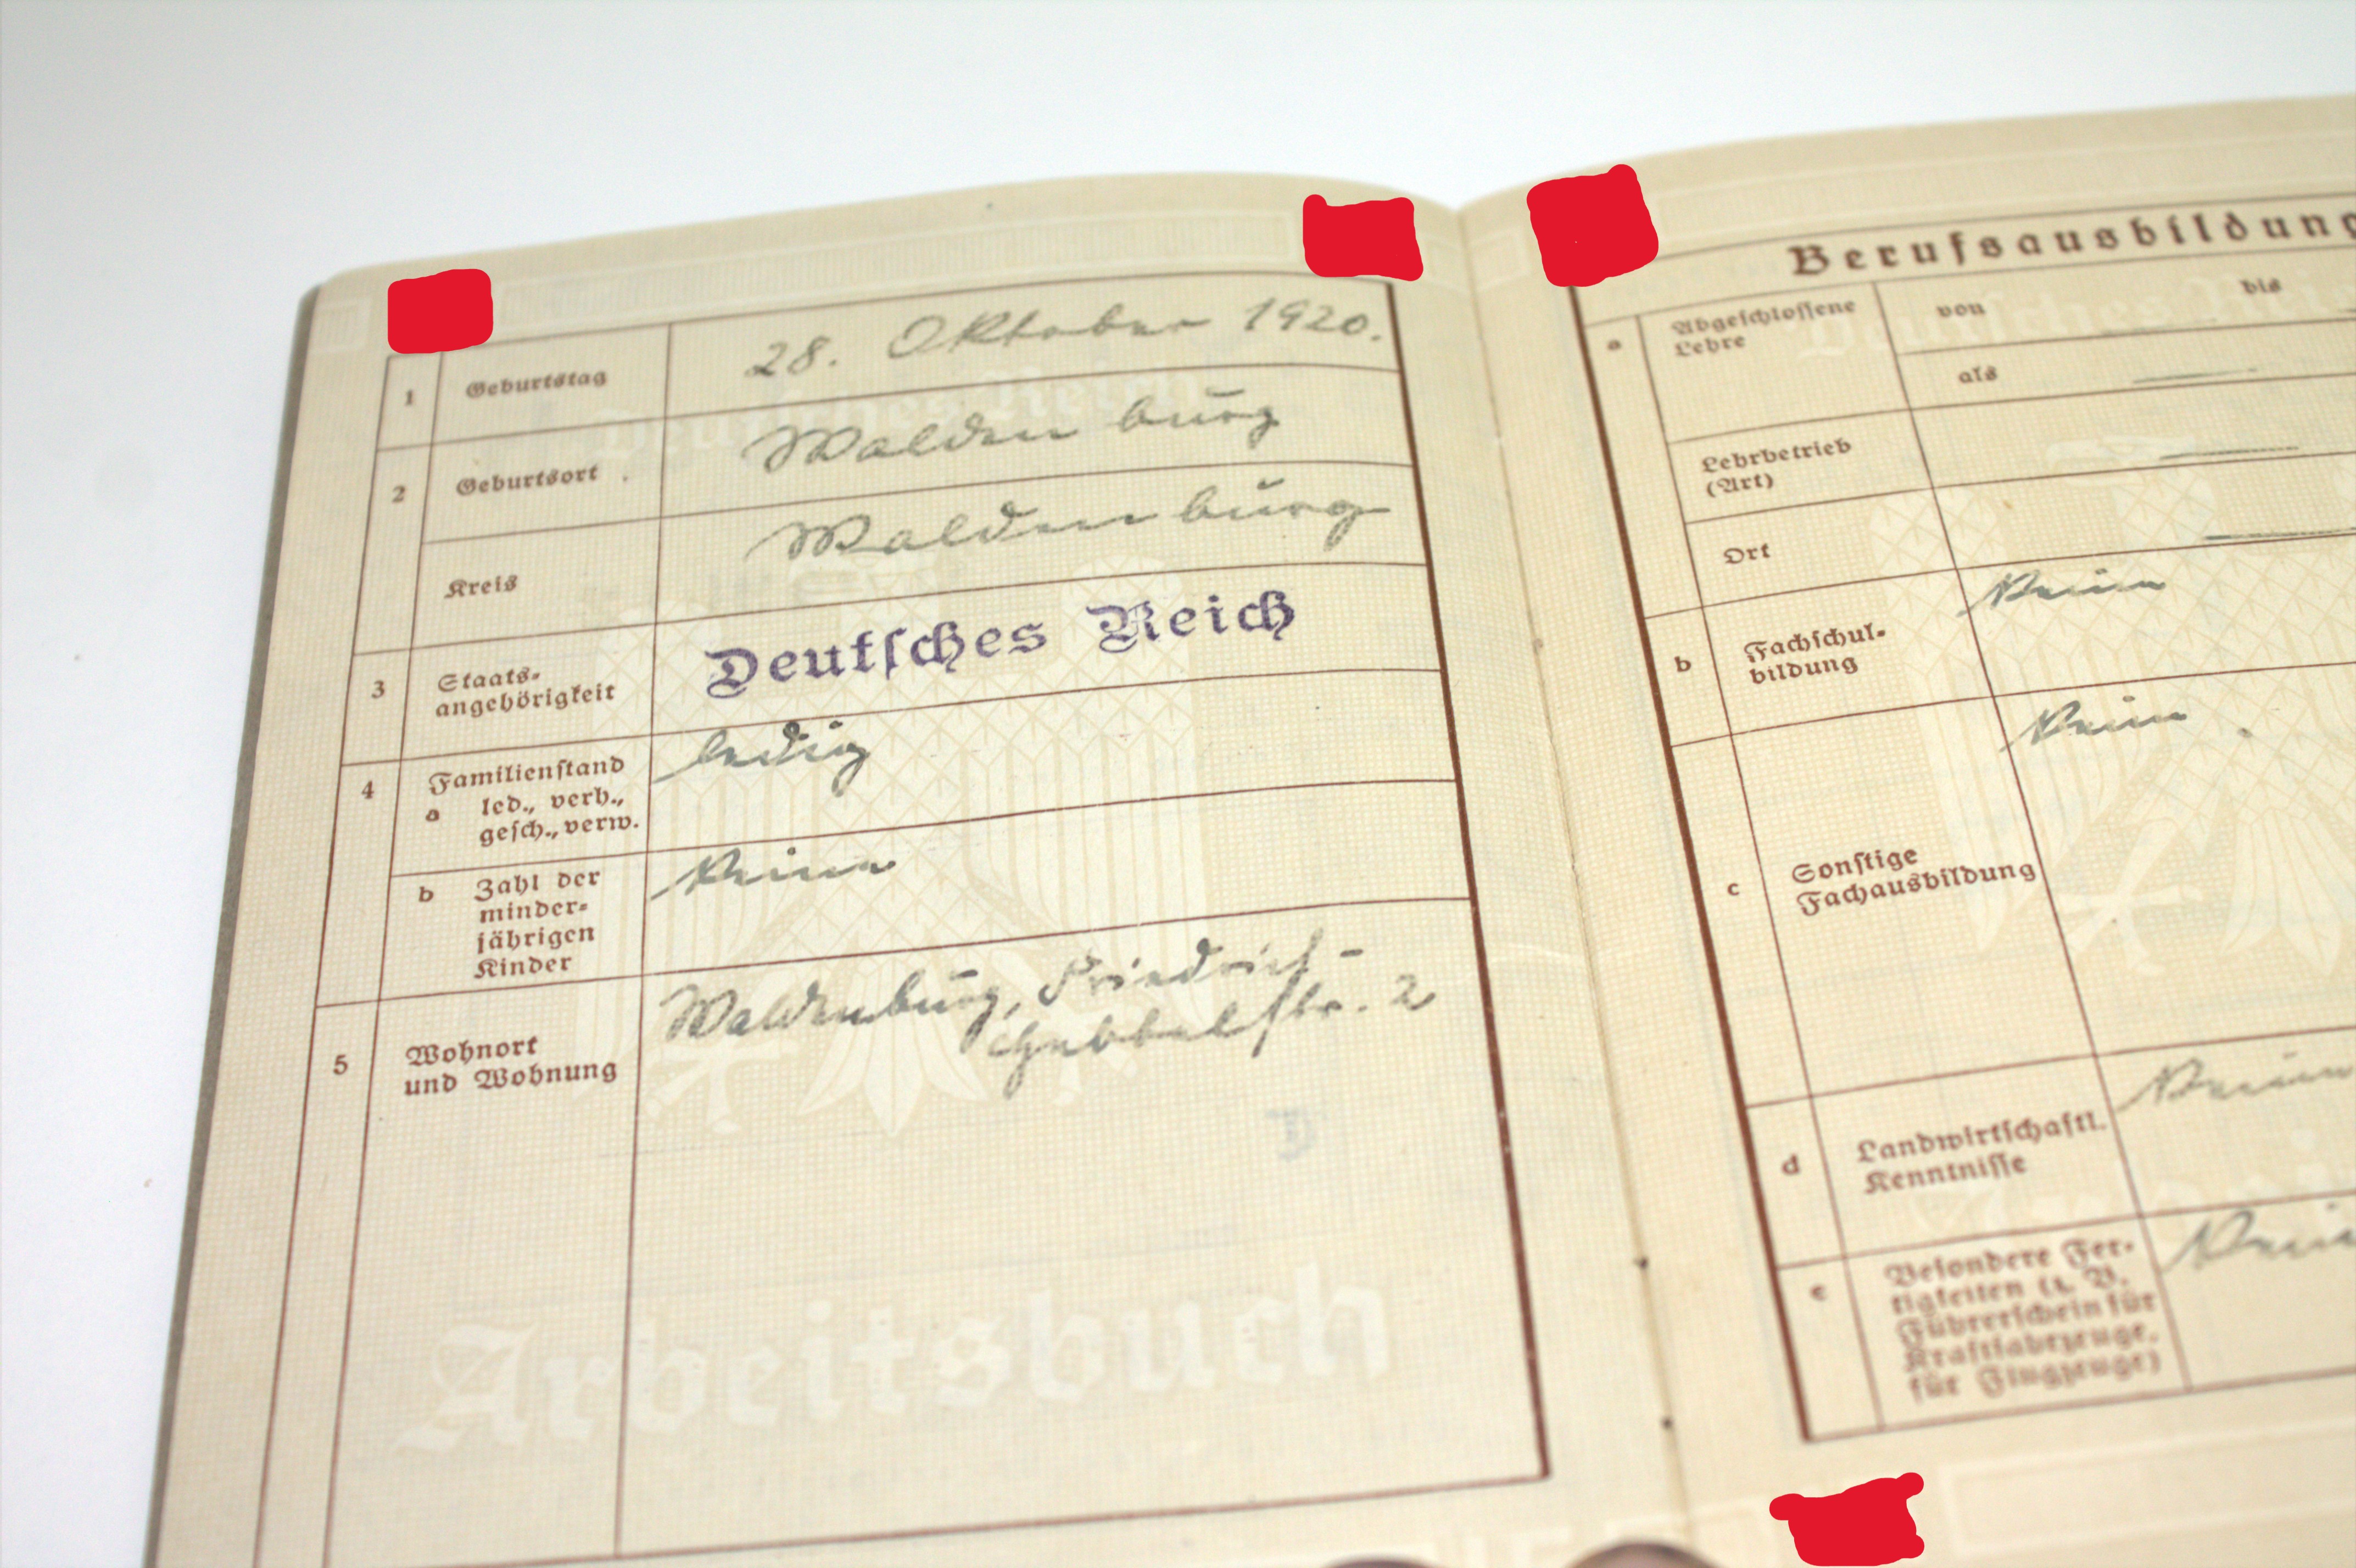 1 Geburtstag 28. Oktober 1920.
2 Geburtsort Waldenburg
Kreis Waldenburg
3 Staats-
angehörigkeit Deutsches Reich
4 Familienstand ledig
a led., verh.,
gesch., verw.
b Zahl der Keine
minder-
jährigen
Kinder
5 Wohnort
und Wohnung
Waldenburg, Friedrich-
Hebbelstr. 2
Deutsches Reich
Arbeitsbuch
Berufsausbildung
a Abgeschlossene
Lehre
von bis
als
Lehrbetrieb
(Art)
Ort
b Fachschul-
bildung
Keine
c Sonstige
Fachausbildung
Keine
d Landwirtschaftl.
Kenntnisse
Keine
e Besondere Fer-
tigkeiten (z. B.
Führerschein für
Kraftfahrzeuge,
für Flugzeuge)